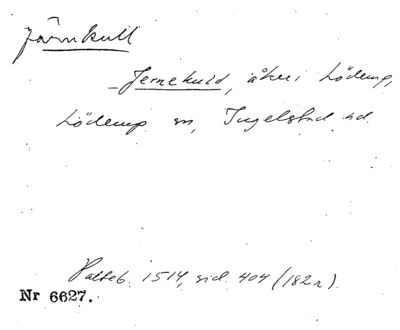 Järnkull
– Jernekuld, åker i Löderup,
Löderup sn, Ingelstad hd.
Palteb. 1514, sid. 404 (182 r).
Nr 6627.